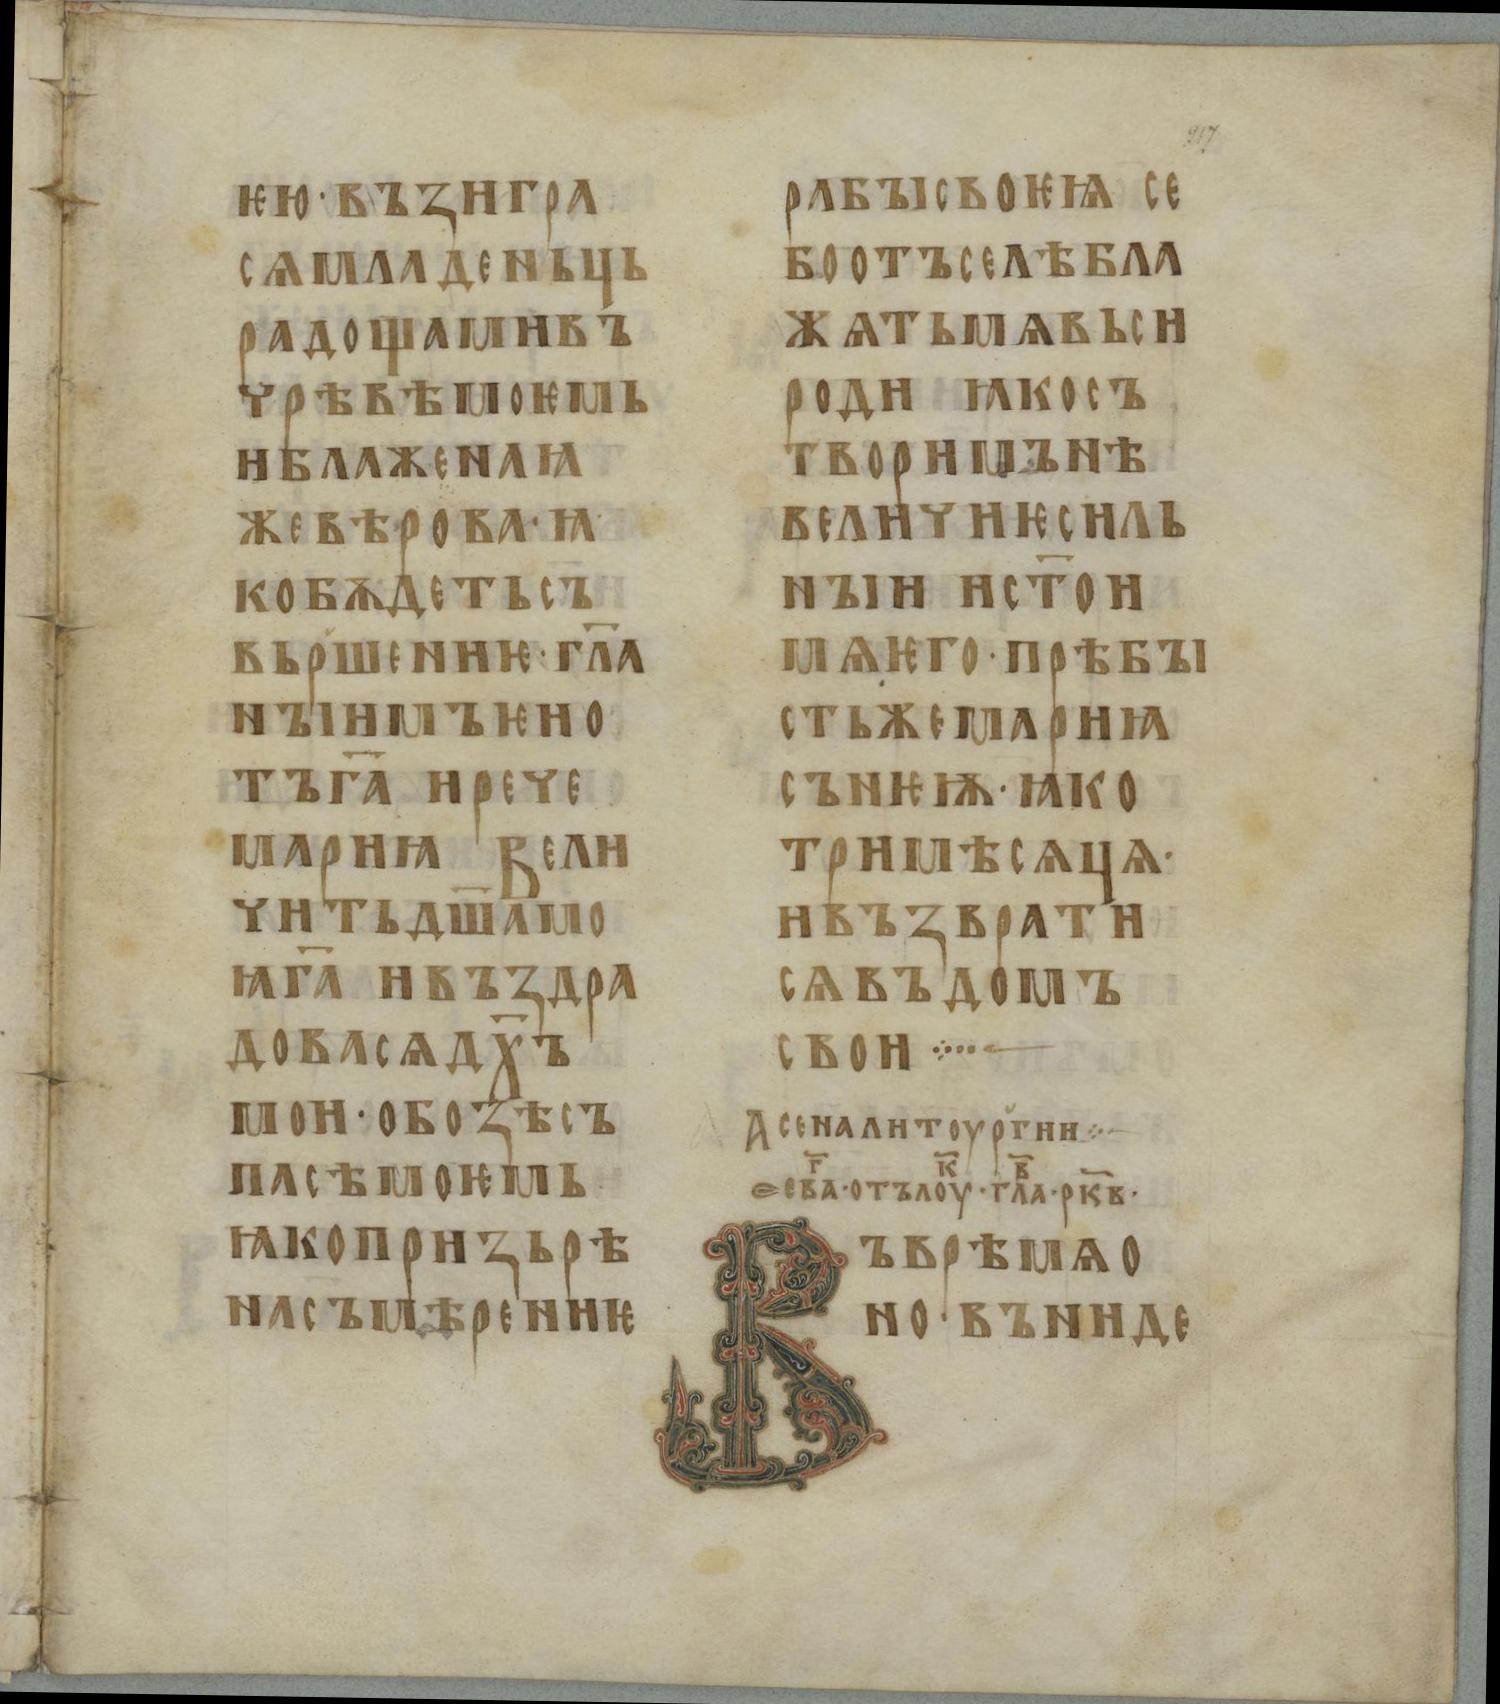 217
ѥю·възигра
сѧмладеньць
радощамивъ
чрѣвѣмоѥмь
иблаженаꙗ
жевѣрова·ꙗ
кобѫдетьсъ
вьршениѥ·гл҃а
нꙑимъѥно
тъга҃ ирече
мариꙗ вели
читьдш҃амо
ꙗга҃ ивъздра
довасѧдх҃ъ
мои·обозѣсъ
пасѣмоѥмь
ꙗкопризьрѣ
насъмѣрениѥ
рабꙑсвоѥꙗ се
боотъселѣбла
жѧтьмѧвьси
роди ꙗкосъ
творимънѣ
величиѥсиль
нꙑи ист҃ои
мѧѥго·прѣбꙑ
стьжемариꙗ
сънѥѭ·ꙗко
тримѣсѧцѧ·
ивъзврати
сѧвъдомъ
свои
асеналитоургии
еѵа҃г·отълоук҃·гла҃в·рк҃в·
Въврѣмѧо
но·въниде